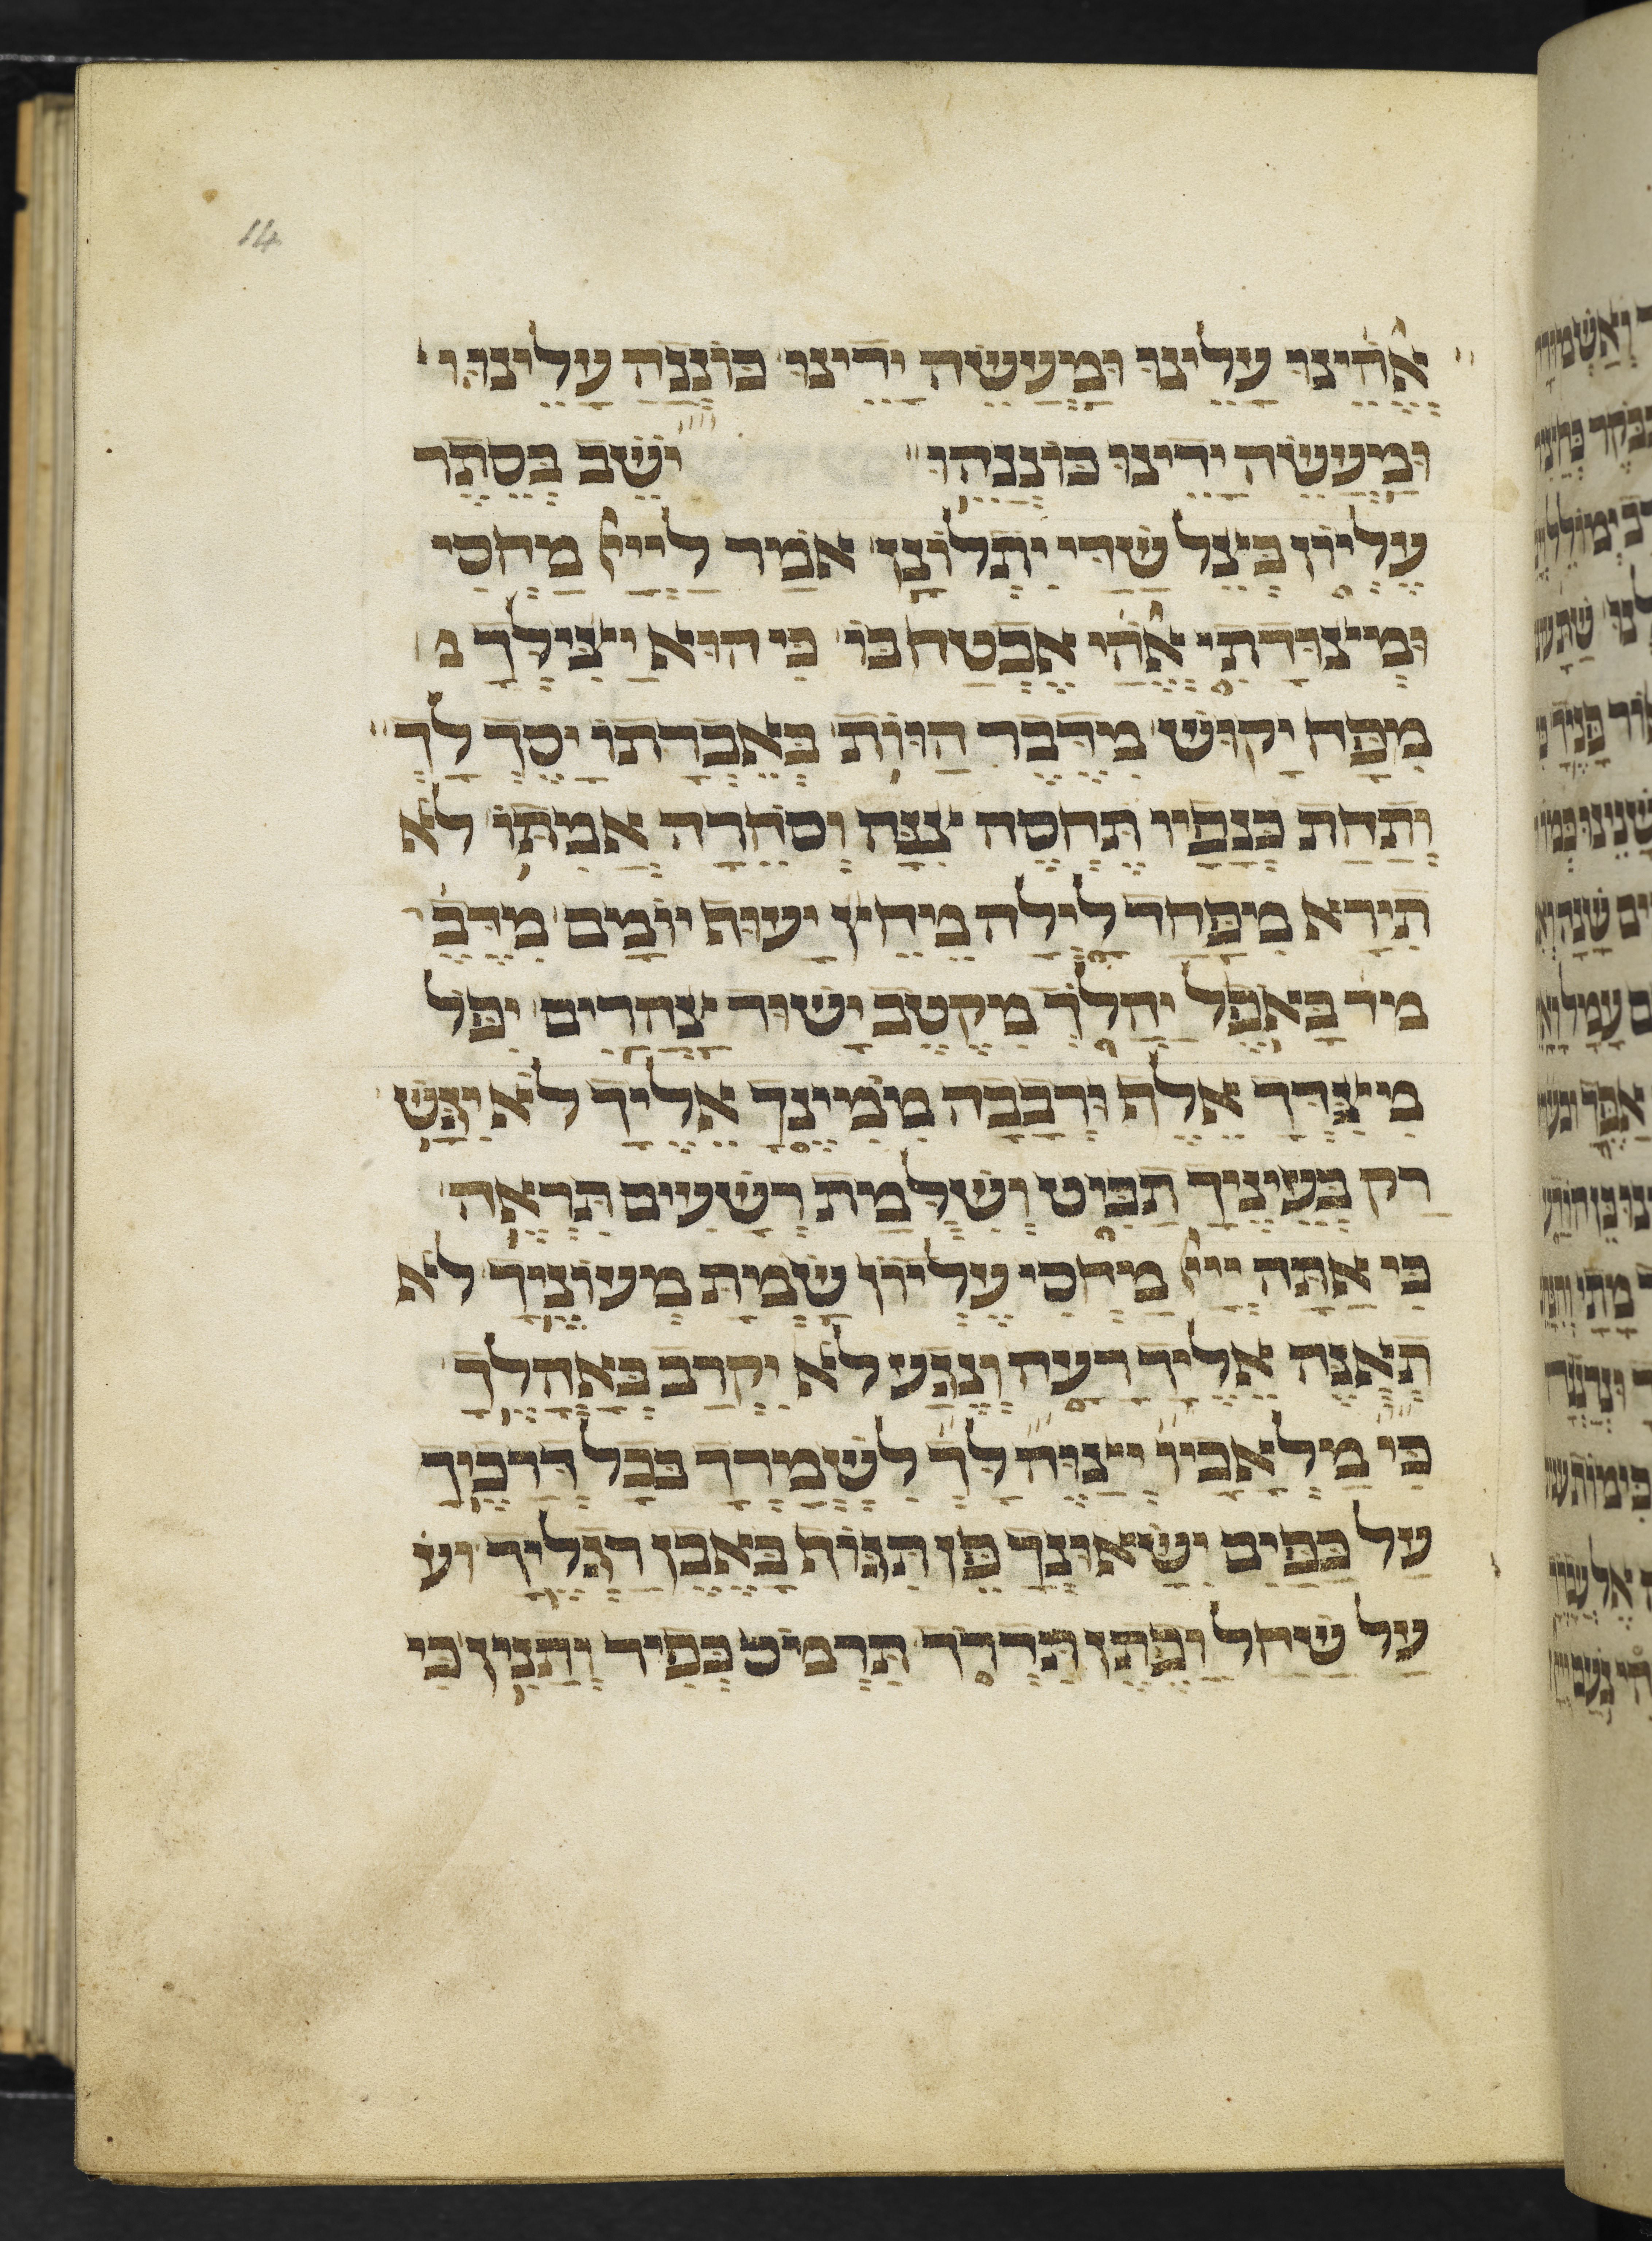 14
אֱהֵינוּ עָלֵינוּ וּמַעֲשֵׂה יָדֵינוּ כּוֹנְנָה עָלֵינוּ
וּמַעֲשֵׂה יָדֵינוּ כּוֹנְנֵהוּ יֹשֵׁב בְּסֵתֶר
עֶלְיוֹן בְּצֵל שַׁדַּי יִתְלוֹנָן אֹמַר לַייָ מַחְסִי
וּמְצוּדָתִי אֱהַי אֶבְטַח בּוֹ כִּי הוּא יַצִּילְךָ
מִפַּח יָקוּשׁ מִדֶּבֶר הַוּוֹת בְּאֶבְרָתוֹ יָסֶךְ לָךְ
וְתַחַת כְּנָפָיו תֶּחְסֶה צִנָּה וְסֹחֵרָה אֲמִתּוֹ לֹא
תִירָא מִפַּחַד לָיְלָה מֵחֵץ יָעוּף יוֹמָם מִדֶּבֶ
מִדֶּבֶר בָּאֹפֶל יַהֲלֹךְ מִקֶּטֶב יָשׁוּד צָהֳרָיִם יִפֹּל
מִצִּדְּךָ אֶלֶף וּרְבָבָה מִמִּינֶךָ אֵלֶיךָ לֹא יִגָּשׁ
רַק בְּעֵינֶיךָ תַבִּיט וְשִׁלֻּמַת רְשָׁעִים תִּרְאֶה
כִּי אַתָּה יְיָ מַחְסִי עֶלְיוֹן שַׂמְתָּ מְעוֹנֶיךָ לֹא
תְאֻנֶּה אֵלֶיךָ רָעָה וְנֶגַע לֹא יִקְרַב בְּאָהֳלֶךָ
כִּי מַלְאָכָיו יְצַוֶּה לָּךְ לִשְׁמָרְךָ בְּכָל דְּרָכֶיךָ
עַל כַּפַּיִם יִשָּׂאוּנְךָ פֶּן תִּגּוֹף בָּאֶבֶן רַגְלֶךָ ע
עַל שַׁחַל וָפֶתֶן תִּדְרֹךְ תִּרְמֹס כְּפִיר וְתַנִּין כִּי